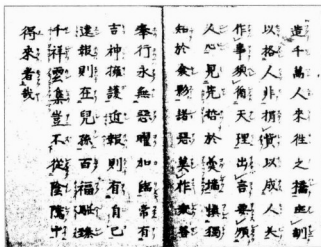 造千萬人來徃之橋垂訓
以格人非捐貲以成人美
作事須循天理出言要順
人心見先哲於羹墻愼獨
知於衾影諸惡莫作衆善
奉行永無惡曜加臨常有
吉神擁護近報則有自己
遠報則在兒孫百福駢臻
千祥雲集豈不從陰隲中
得來者哉